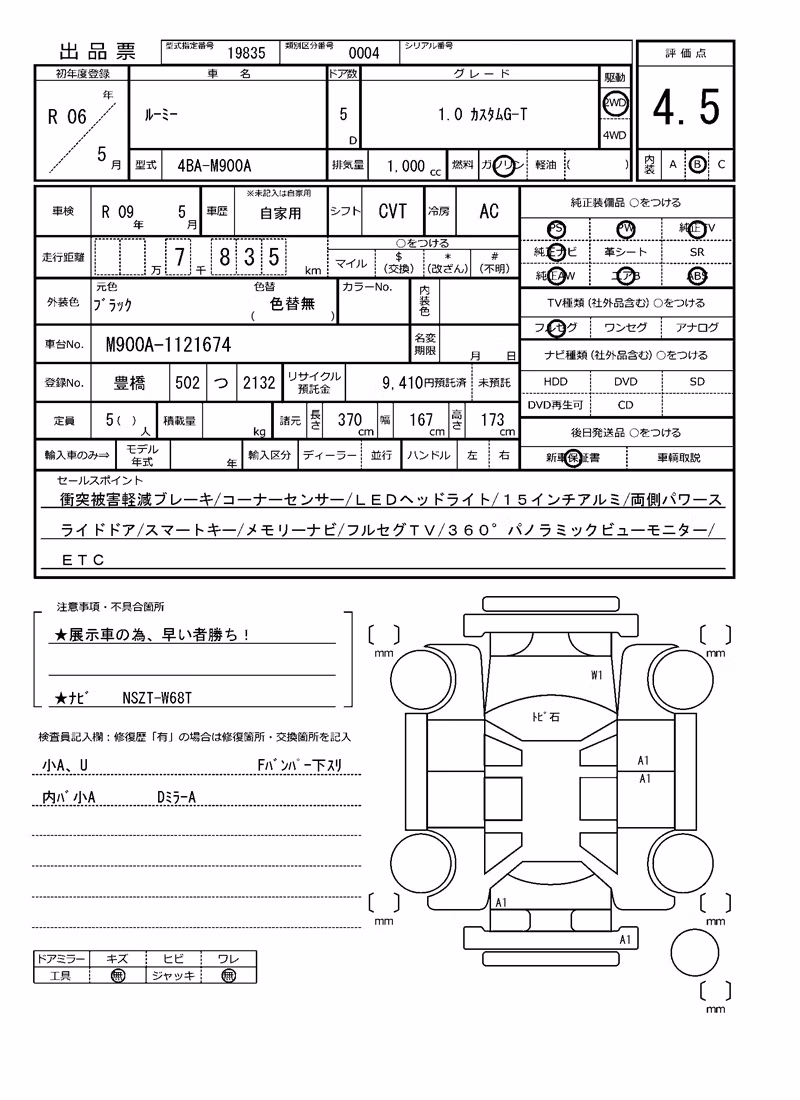 出品票 型式指定番号 19835 類別区分番号 0004 シリアル番号
評価点
4.5
内装 A B C
初年度登録 車名 ドア数 グレード 駆動
R 06 年 5 月 ルーミー 5 D 1.0 カスタムG-T 2WD
4WD
型式 4BA-M900A 排気量 1.000 cc 燃料 ガソリン 軽油 ( )
車検 R 09 年 5 月 車歴 ※未記入は自家用 自家用 シフト CVT 冷房 AC
走行距離 万 7 千 8 3 5 km ○をつける
マイル $(交換) *(改ざん) #(不明)
外装色 元色 ブラック 色替 色替無 ( ) カラーNo. 内装色
車台No. M900A-1121674 名変期限 月 日
登録No. 豊橋 502 つ 2132 リサイクル預託金 9,410円預託済 未預託
定員 5( ) 人 積載量 kg 諸元 長さ 370 cm 幅 167 cm 高さ 173 cm
輸入車のみ⇒ モデル年式 年 輸入区分 ディーラー 並行 ハンドル 左 右
純正装備品 ○をつける
PS PW 純正TV
純正ナビ 革シート SR
純正AW エアB ABS
TV種類(社外品含む)○をつける
フルセグ ワンセグ アナログ
ナビ種類(社外品含む)○をつける
HDD DVD SD
DVD再生可 CD
後日発送品 ○をつける
新車保証書 車輌取説
セールスポイント
衝突被害軽減ブレーキ/コーナーセンサー/ＬＥＤヘッドライト/１５インチアルミ/両側パワース
ライドドア/スマートキー/メモリーナビ/フルセグＴＶ/３６０°パノラミックビューモニター/
ＥＴＣ
注意事項・不具合箇所
★展示車の為、早い者勝ち！
★ﾅﾋﾞ NSZT-W68T
検査員記入欄：修復歴「有」の場合は修復箇所・交換箇所を記入
小A、U Fﾊﾞﾝﾊﾟｰ下ｽﾘ
内ﾊﾞ小A DﾐﾗｰA
ドアミラー キズ ヒビ ワレ
工具 無 ジャッキ 無
mm
mm
W1
ﾄﾋﾞ石
A1
A1
A1
A1
mm
mm
mm